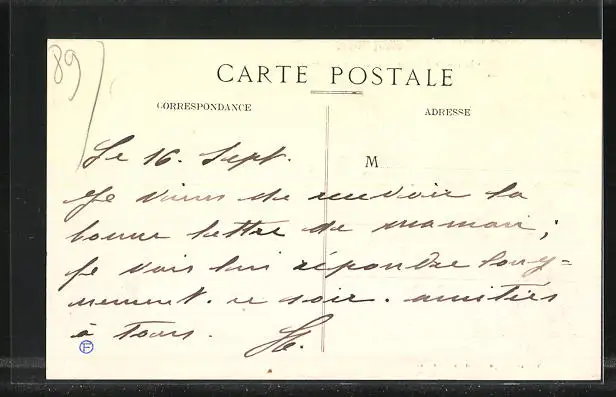 89
CARTE POSTALE
CORRESPONDANCE
ADRESSE
M
Le 16. Sept.
Je viens de recevoir la
bonne lettre de maman;
je vais lui répondre longu=
ement. ce soir. amitiés
à Tous.
E